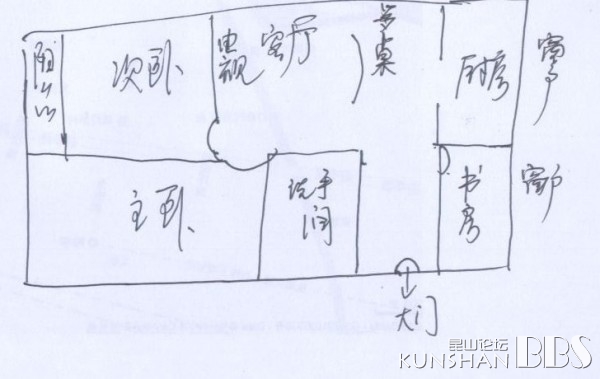 阳台
次卧
电视
客厅
餐桌
厨房
窗户
主卧
洗手间
书房
窗户
大门
昆山论坛
KUNSHAN BBS